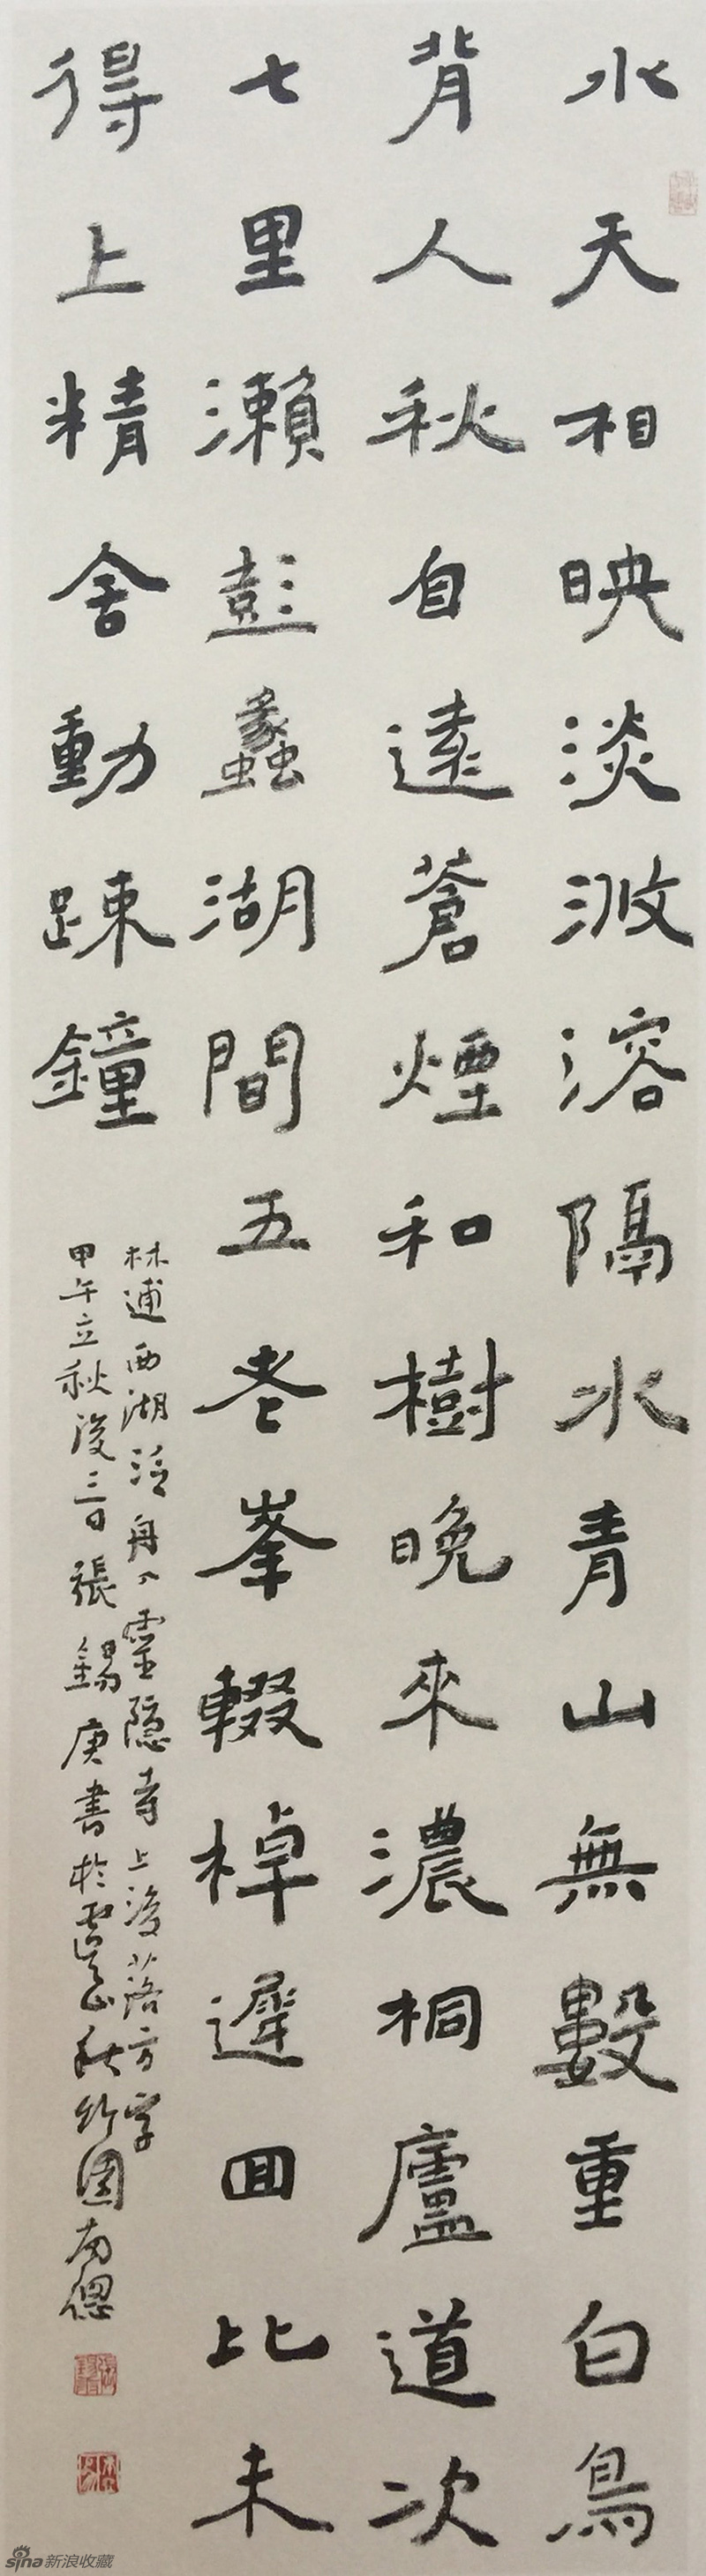 水天相映淡浟溶隔水青山無數重白鳥
背人秋自遠蒼煙和樹晚來濃桐廬道次
七里瀨彭蠡湖間五老峯輟棹遲囬比未
得上精舍動踈鐘
林逋西湖泛舟入靈隱寺上後落方字
甲午立秋後三日張錫庚書於虞山秋竹園南
sina新浪收藏